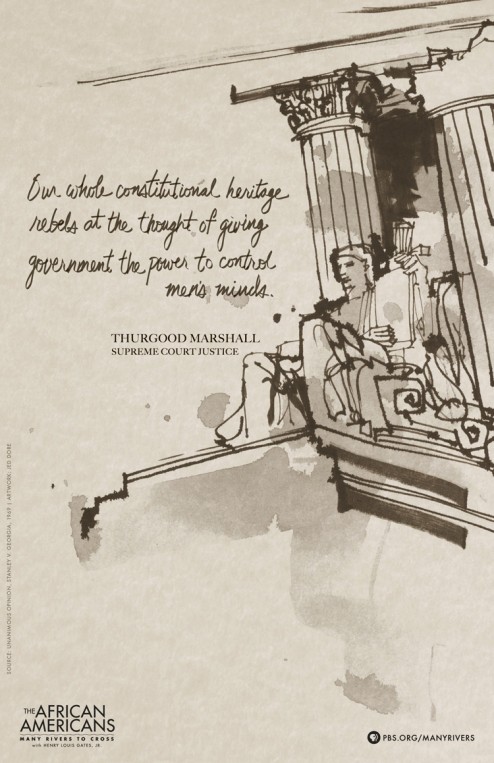 Our whole constitutional heritage
rebels at the thought of giving
government the power to control
men's minds.
THURGOOD MARSHALL
SUPREME COURT JUSTICE
SOURCE: UNANIMOUS OPINION, STANLEY V. GEORGIA, 1969 | ARTWORK: JED DORE
THE AFRICAN
AMERICANS
MANY RIVERS TO CROSS
with HENRY LOUIS GATES, JR.
PBS.ORG/MANYRIVERS